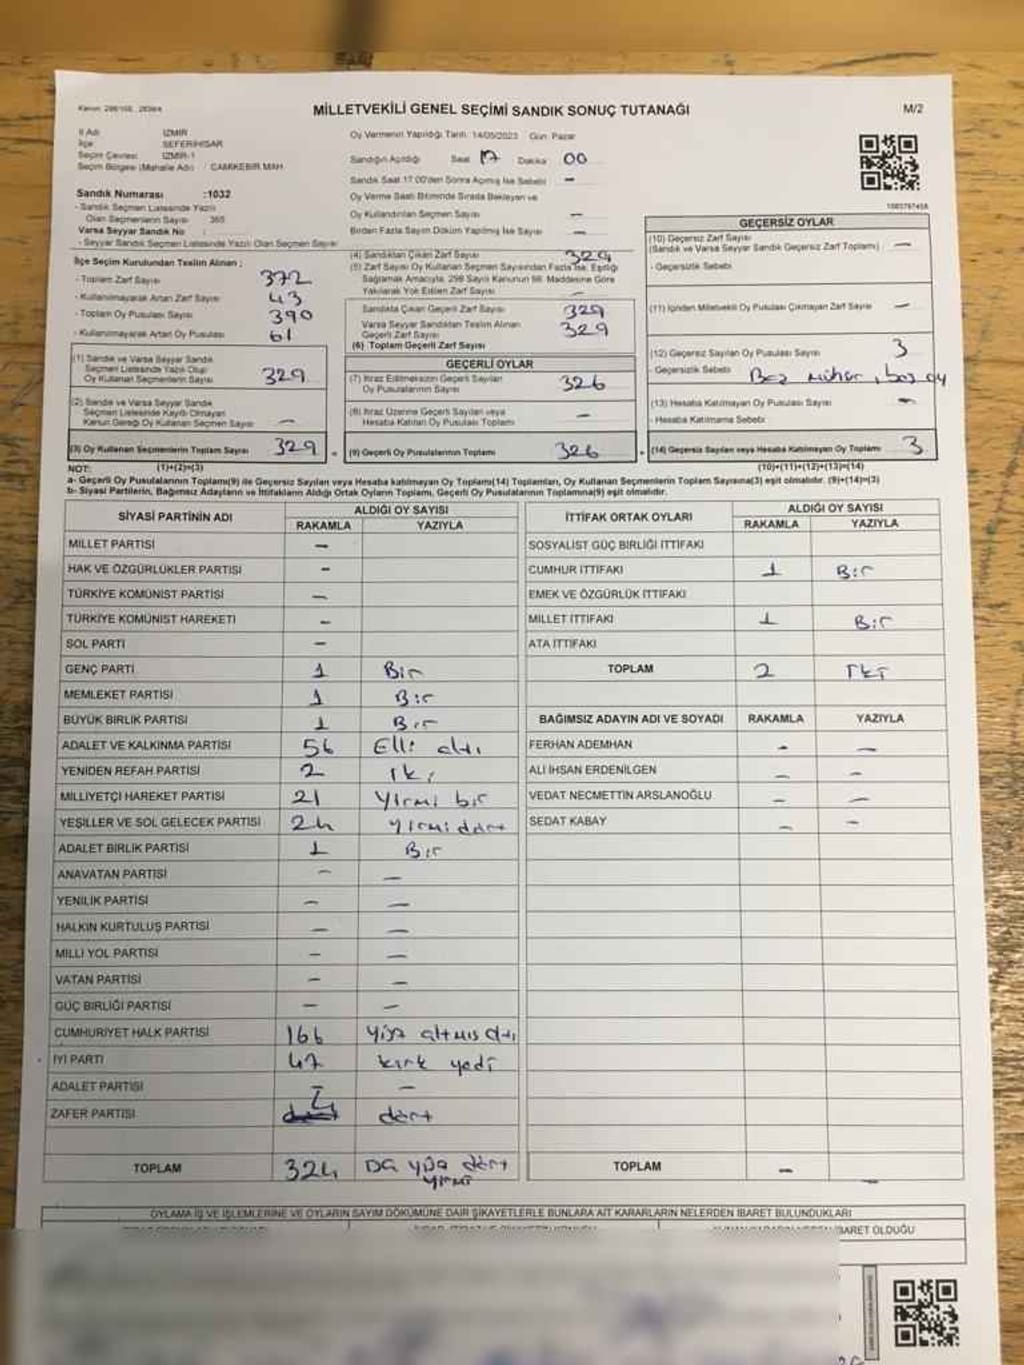 MİLLETVEKİLİ GENEL SEÇİMİ SANDIK SONUÇ TUTANAĞI
M/2
İl Adı : İZMİR
İlçe : SEFERİHİSAR
Seçim Çevresi : İZMİR-1
Seçim Bölgesi (Mahalle Adı) : CAMİKEBİR MAH.
Sandık Numarası :1032
- Sandık Seçmen Listesinde Yazılı
Olan Seçmenlerin Sayısı : 365
Varsa Seyyar Sandık No :
- Seyyar Sandık Seçmen Listesinde Yazılı Olan Seçmen Sayısı :
Oy Vermenin Yapıldığı Tarih: 14/05/2023 Gün: Pazar
Sandığın Açıldığı Saat 17 Dakika 00
Sandık Saat 17:00'den Sonra Açılmış İse Sebebi : -
Oy Verme Saati Bitiminde Sırada Bekleyen ve
Oy Kullandırılan Seçmen Sayısı : -
Birden Fazla Sayım Döküm Yapılmış İse Sayısı : -
İlçe Seçim Kurulundan Teslim Alınan ;
- Toplam Zarf Sayısı : 372
- Kullanılmayarak Artan Zarf Sayısı : 43
- Toplam Oy Pusulası Sayısı : 390
- Kullanılmayarak Artan Oy Pusulası : 61
(1) Sandık ve Varsa Seyyar Sandık
Seçmen Listesinde Yazılı Olup
Oy Kullanan Seçmenlerin Sayısı : 329
(2) Sandık ve Varsa Seyyar Sandık
Seçmen Listesinde Kayıtlı Olmayan
Kanun Gereği Oy Kullanan Seçmen Sayısı : -
(3) Oy Kullanan Seçmenlerin Toplam Sayısı : 329
(4) Sandıktan Çıkan Zarf Sayısı : 329
(5) Zarf Sayısı Oy Kullanan Seçmen Sayısından Fazla İse, Eşitliği
Sağlamak Amacıyla, 298 Sayılı Kanunun 98. Maddesine Göre
Yakılarak Yok Edilen Zarf Sayısı : -
Sandıkta Çıkan Geçerli Zarf Sayısı : 329
Varsa Seyyar Sandıktan Teslim Alınan
Geçerli Zarf Sayısı : 329
(6) Toplam Geçerli Zarf Sayısı :
GEÇERLİ OYLAR
(7) İtiraz Edilmeksizin Geçerli Sayılan
Oy Pusulalarının Sayısı : 326
(8) İtiraz Üzerine Geçerli Sayılan veya
Hesaba Katılan Oy Pusulası Toplamı : -
= (9) Geçerli Oy Pusulalarının Toplamı : 326
GEÇERSİZ OYLAR
(10) Geçersiz Zarf Sayısı
(Sandık ve Varsa Seyyar Sandık Geçersiz Zarf Toplamı) : -
- Geçersizlik Sebebi :
(11) İçinden Milletvekili Oy Pusulası Çıkmayan Zarf Sayısı : -
(12) Geçersiz Sayılan Oy Pusulası Sayısı : 3
- Geçersizlik Sebebi : mühür, boş oy
(13) Hesaba Katılmayan Oy Pusulası Sayısı : -
- Hesaba Katılmama Sebebi :
+ (14) Geçersiz Sayılan veya Hesaba Katılmayan Oy Toplamı : 3
NOT: (1)+(2)=(3) (10)+(11)+(12)+(13)=(14)
a- Geçerli Oy Pusulalarının Toplamı(9) ile Geçersiz Sayılan veya Hesaba katılmayan Oy Toplamı(14) Toplamları, Oy Kullanan Seçmenlerin Toplam Sayısına(3) eşit olmalıdır. (9)+(14)=(3)
b- Siyasi Partilerin, Bağımsız Adayların ve İttifakların Aldığı Ortak Oyların Toplamı, Geçerli Oy Pusulalarının Toplamına(9) eşit olmalıdır.
SİYASİ PARTİNİN ADI ALDIĞI OY SAYISI
RAKAMLA YAZIYLA
MİLLET PARTİSİ -
HAK VE ÖZGÜRLÜKLER PARTİSİ -
TÜRKİYE KOMÜNİST PARTİSİ -
TÜRKİYE KOMÜNİST HAREKETİ -
SOL PARTİ -
GENÇ PARTİ 1 Bir
MEMLEKET PARTİSİ 1 Bir
BÜYÜK BİRLİK PARTİSİ 1 Bir
ADALET VE KALKINMA PARTİSİ 56 Elli altı
YENİDEN REFAH PARTİSİ 2 İki
MİLLİYETÇİ HAREKET PARTİSİ 21 Yirmi bir
YEŞİLLER VE SOL GELECEK PARTİSİ 24 Yirmi dört
ADALET BİRLİK PARTİSİ 1 Bir
ANAVATAN PARTİSİ - -
YENİLİK PARTİSİ - -
HALKIN KURTULUŞ PARTİSİ - -
MİLLİ YOL PARTİSİ - -
VATAN PARTİSİ - -
GÜÇ BİRLİĞİ PARTİSİ - -
CUMHURİYET HALK PARTİSİ 166 Yüz altmış altı
İYİ PARTİ 47 kırk yedi
ADALET PARTİSİ - -
ZAFER PARTİSİ 4 dört
TOPLAM 324 yüz dört
yirmi
İTTİFAK ORTAK OYLARI ALDIĞI OY SAYISI
RAKAMLA YAZIYLA
SOSYALİST GÜÇ BİRLİĞİ İTTİFAKI
CUMHUR İTTİFAKI 1 Bir
EMEK VE ÖZGÜRLÜK İTTİFAKI
MİLLET İTTİFAKI 1 Bir
ATA İTTİFAKI
TOPLAM 2 İki
BAĞIMSIZ ADAYIN ADI VE SOYADI RAKAMLA YAZIYLA
FERHAN ADEMHAN - -
ALİ İHSAN ERDENİLGEN - -
VEDAT NECMETTİN ARSLANOĞLU - -
SEDAT KABAY - -
TOPLAM - -
OYLAMA İŞ VE İŞLEMLERİNE VE OYLARIN SAYIM DÖKÜMÜNE DAİR ŞİKAYETLERLE BUNLARA AİT KARARLARIN NELERDEN İBARET BULUNDUKLARI
İBARET OLDUĞU